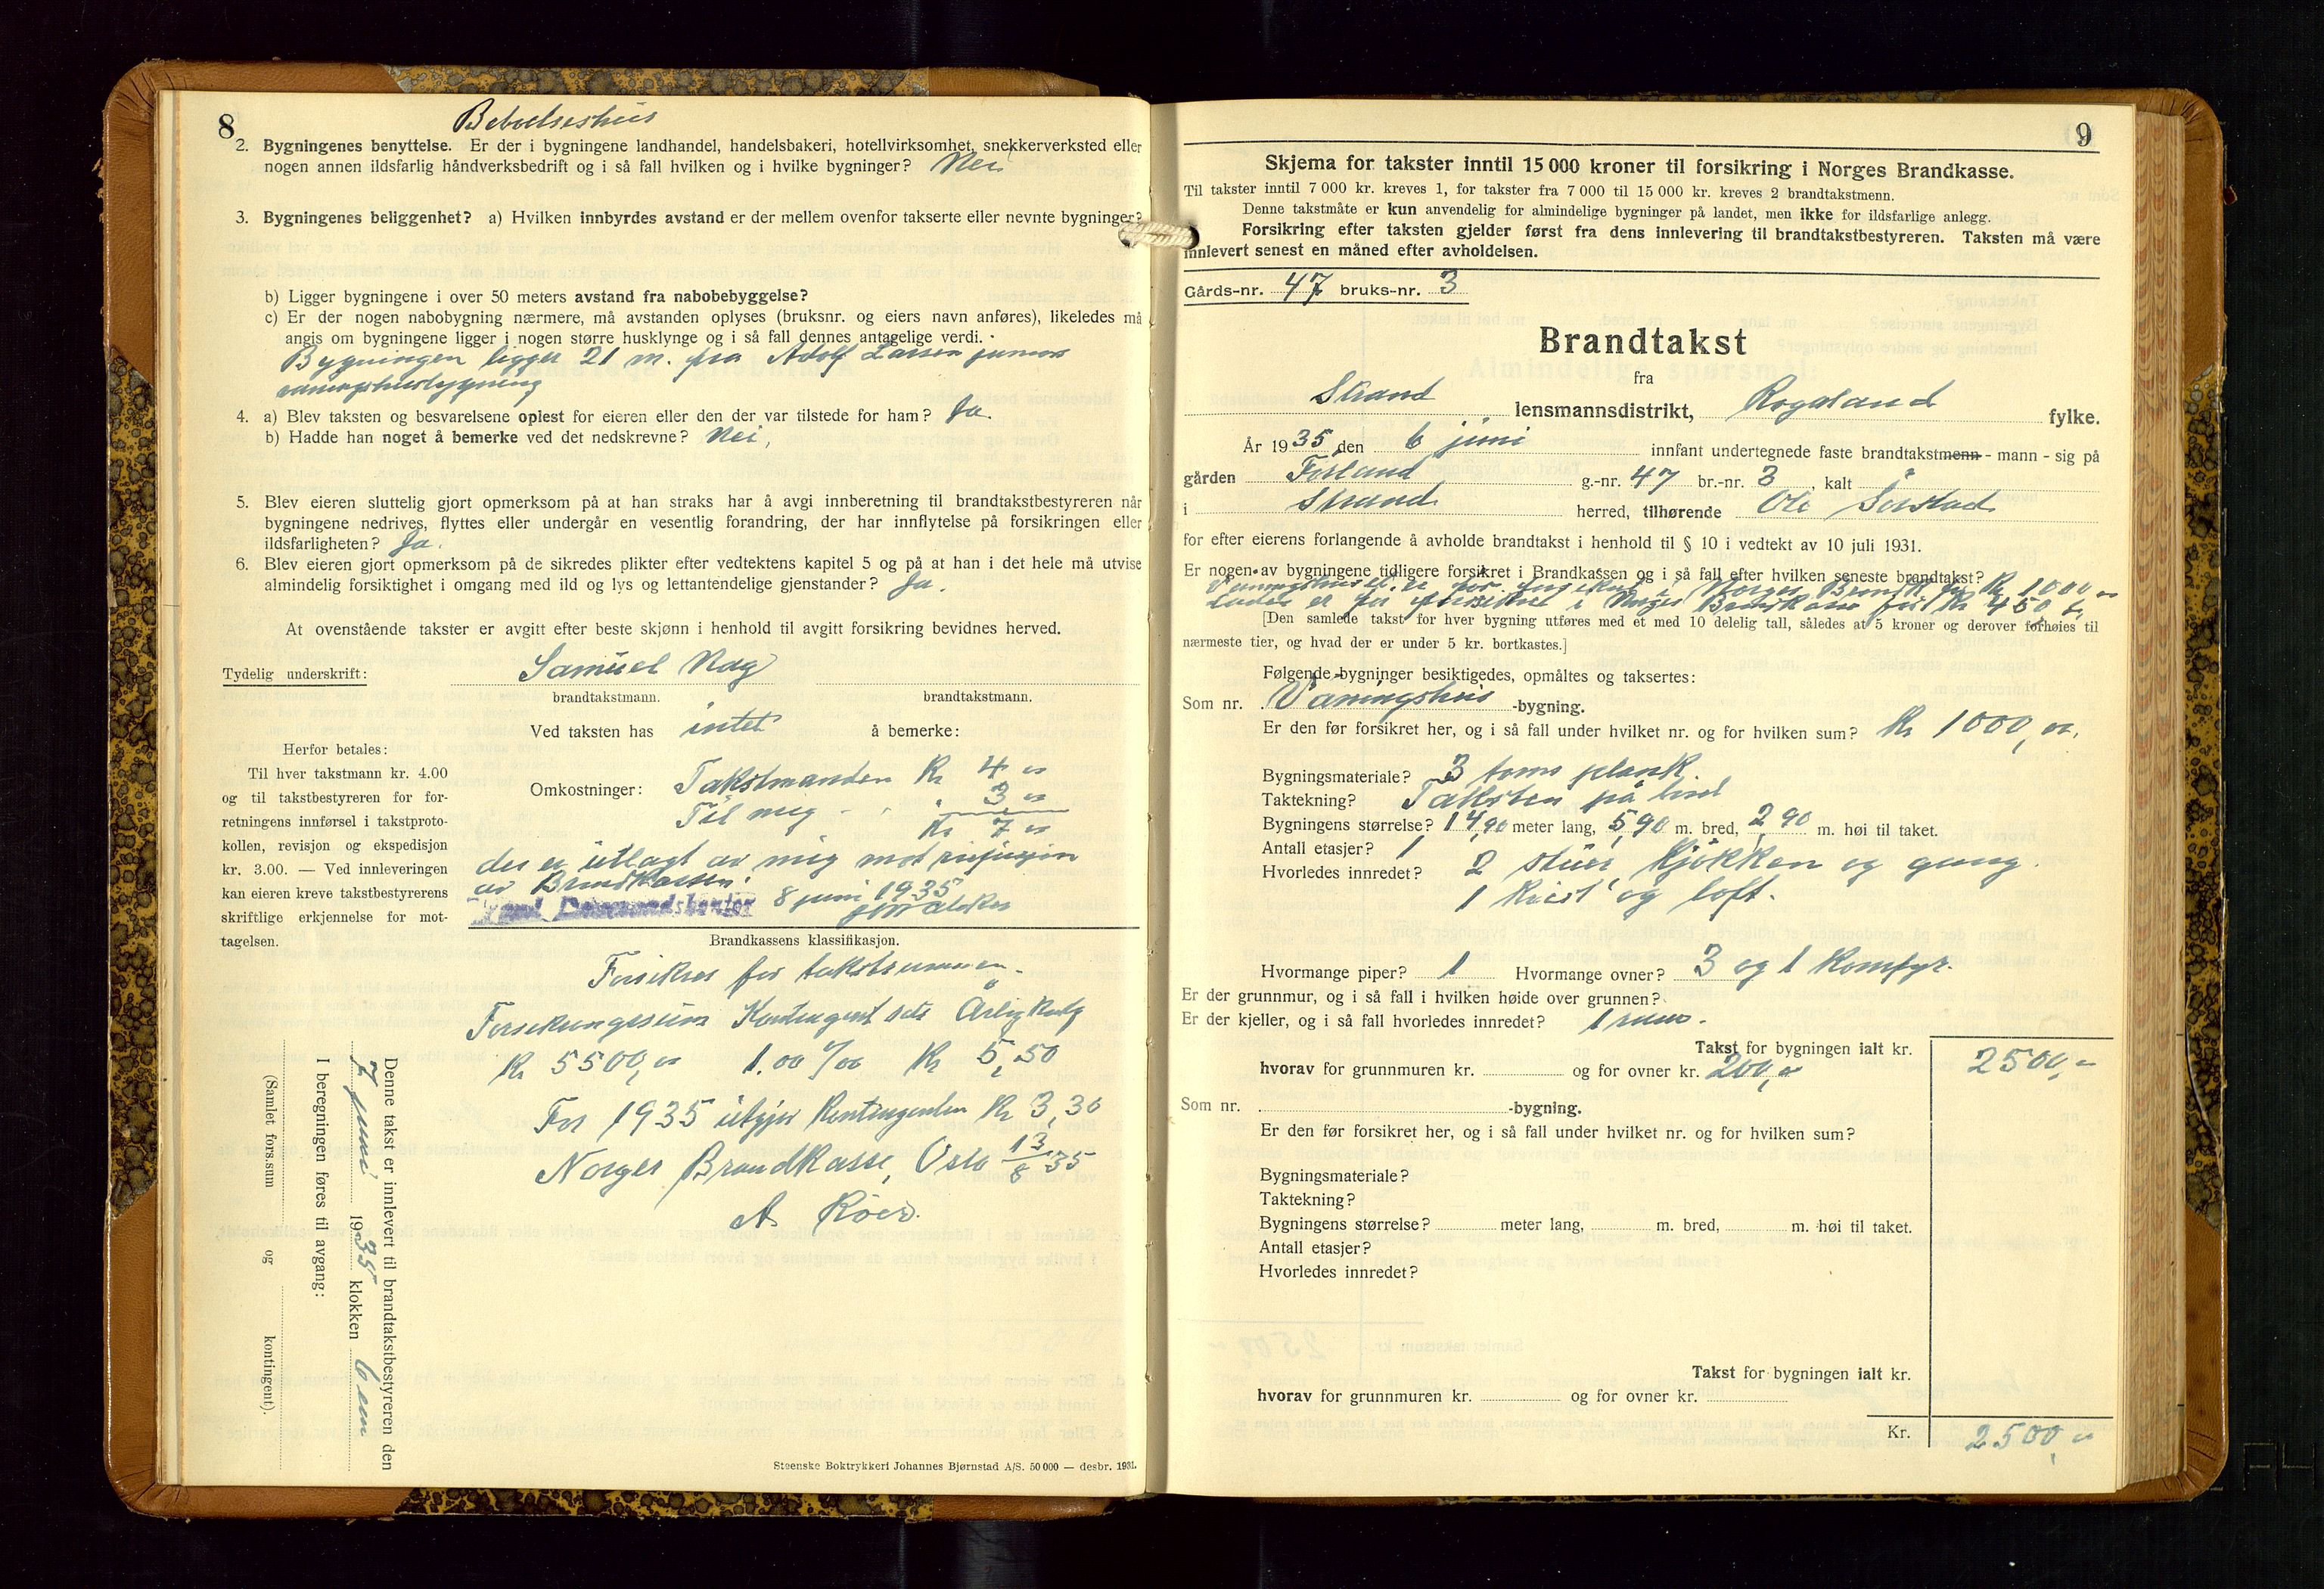 8
Beboelseshus
2. Bygningenes benyttelse. Er der i bygningene landhandel, handelsbakeri, hotellvirksomhet, snekkerverksted eller
nogen annen ildsfarlig håndverksbedrift og i så fall hvilken og i hvilke bygninger? Nei
3. Bygningenes beliggenhet? a) Hvilken innbyrdes avstand er der mellem ovenfor takserte eller nevnte bygninger?
b) Ligger bygningene i over 50 meters avstand fra nabobebyggelse?
c) Er der nogen nabobygning nærmere, må avstanden oplyses (bruksnr. og eiers navn anføres), likeledes må
angis om bygningene ligger i nogen større husklynge og i så fall dennes antagelige verdi.
Bygningen ligger 21 m. fra Adolf Larsen juniors
vaaningshusbygning
4. a) Blev taksten og besvarelsene oplest for eieren eller den der var tilstede for ham? Ja.
b) Hadde han noget å bemerke ved det nedskrevne? Nei,
5. Blev eieren sluttelig gjort opmerksom på at han straks har å avgi innberetning til brandtakstbestyreren når
bygningene nedrives, flyttes eller undergår en vesentlig forandring, der har innflytelse på forsikringen eller
ildsfarligheten? Ja.
6. Blev eieren gjort opmerksom på de sikredes plikter efter vedtektens kapitel 5 og på at han i det hele må utvise
almindelig forsiktighet i omgang med ild og lys og lettantendelige gjenstander? Ja.
At ovenstående takster er avgitt efter beste skjønn i henhold til avgitt forsikring bevidnes herved.
Tydelig underskrift: Samuel Nag
brandtakstmann. brandtakstmann.
Ved taksten has intet å bemerke:
Herfor betales:
Til hver takstmann kr. 4.00
og til takstbestyreren for for-
retningens innførsel i takstproto-
kollen, revisjon og ekspedisjon
kr. 3.00. — Ved innleveringen
kan eieren kreve takstbestyrerens
skriftlige erkjennelse for mot-
tagelsen.
Omkostninger: Takstmanden Kr 4 "
Til mig - . " 3 "
Kr 7 "
der er utlagt av mig mot refusjon
av Brandkassen.
8 juni 1935
Brandkassens klassifikasjon.
Forsikres for takstsummen.
Forsikringssum Kontingent sats Årlig Kontg
Kr 5500,00 1.00 ‰ Kr 5,50
For 1935 utgjør Kontingenten Kr 3,30
Norges Brandkasse, Oslo 13/8 35
Denne takst er innlevert til brandtakstbestyreren den
7 juni 1935 klokken 6 em
I beregningen føres til avgang:
(Samlet fors.sum og kontingent).
Steenske Boktrykkeri Johannes Bjørnstad A/S. 50 000 — desbr. 1931.
9
Skjema for takster inntil 15 000 kroner til forsikring i Norges Brandkasse.
Til takster inntil 7 000 kr. kreves 1, for takster fra 7 000 til 15 000 kr. kreves 2 brandtakstmenn.
Denne takstmåte er kun anvendelig for almindelige bygninger på landet, men ikke for ildsfarlige anlegg.
Forsikring efter taksten gjelder først fra dens innlevering til brandtakstbestyreren. Taksten må være
innlevert senest en måned efter avholdelsen.
Gårds-nr. 47 bruks-nr. 3
Brandtakst
fra
Strand lensmannsdistrikt, Rogaland fylke.
År 1935 den 6 juni innfant undertegnede faste brandtakstmenn - mann - sig på
gården Førland g.-nr. 47 br.-nr. 3, kalt
i Strand herred, tilhørende Ole
for efter eierens forlangende å avholde brandtakst i henhold til § 10 i vedtekt av 10 juli 1931.
Er nogen av bygningene tidligere forsikret i Brandkassen og i så fall efter hvilken seneste brandtakst?
Vaaningshuset er før forsikret i Norges Brandk. for Kr 1000 "
er før forsikret i Norges Brandkasse for Kr 450
[Den samlede takst for hver bygning utføres med et med 10 delelig tall, således at 5 kroner og derover forhøies til
nærmeste tier, og hvad der er under 5 kr. bortkastes.]
Følgende bygninger besiktigedes, opmåltes og taksertes:
Som nr. Våningshus -bygning.
Er den før forsikret her, og i så fall under hvilket nr. og for hvilken sum? Kr 1000,00.
Bygningsmateriale? 3 toms plank.
Taktekning? Taksten på bord
Bygningens størrelse? 14,90 meter lang, 5,90 m. bred, 2,90 m. høi til taket.
Antall etasjer? 1
Hvorledes innredet? 2 stuer, Kjøkken og gang.
1 Kvist og loft.
Hvormange piper? 1 Hvormange ovner? 3 og 1 Komfyr.
Er der grunnmur, og i så fall i hvilken høide over grunnen?
Er der kjeller, og i så fall hvorledes innredet? 1 rum.
Takst for bygningen ialt kr. 2500,"
hvorav for grunnmuren kr. og for ovner kr. 200,"
Som nr. -bygning.
Er den før forsikret her, og i så fall under hvilket nr. og for hvilken sum?
Bygningsmateriale?
Taktekning?
Bygningens størrelse? meter lang, m. bred, m. høi til taket.
Antall etasjer?
Hvorledes innredet?
Takst for bygningen ialt kr.
hvorav for grunnmuren kr. og for ovner kr.
Kr. 2500,"